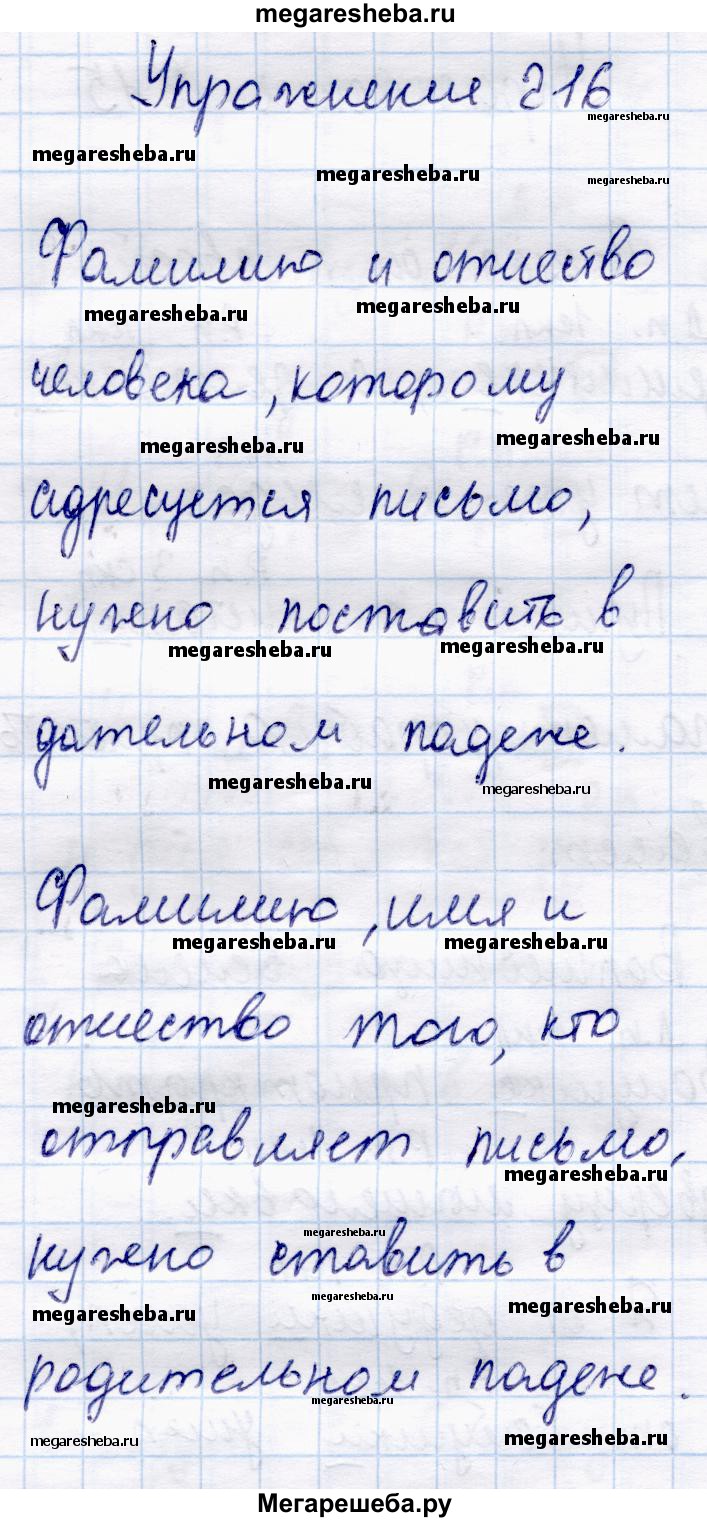 megaresheba.ru
Упражнение 216
megaresheba.ru
megaresheba.ru
megaresheba.ru
megaresheba.ru
Фамилию и отчество
megaresheba.ru
megaresheba.ru
человека, которому
megaresheba.ru
megaresheba.ru
адресуется письмо,
нужно поставить в
megaresheba.ru
megaresheba.ru
дательном падеже.
megaresheba.ru
megaresheba.ru
Фамилию, имя и
megaresheba.ru
megaresheba.ru
отчество того, кто
megaresheba.ru
отправляет письмо,
megaresheba.ru
megaresheba.ru
нужно ставить в
megaresheba.ru
megaresheba.ru
megaresheba.ru
родительном падеже.
megaresheba.ru
megaresheba.ru
megaresheba.ru
Мегарешеба.ру